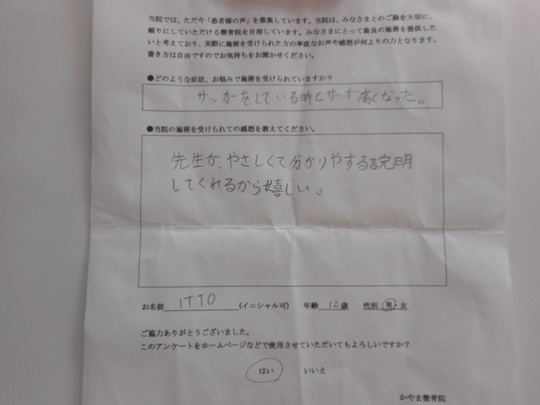 当院では、ただ今「患者様の声」を募集しています。当院は、みなさまとのご縁を大切に、
頼りにしていただける整骨院を目指しています。みなさまにとって最良の施術を提供した
いと考えており、実際に施術を受けられた方の率直なお声や感想が何よりの力となります。
書き方は自由ですのでお気持ちをお聞かせください。
●どのような症状、お悩みで施術を受けられていますか？
サッカーをしている時とザが痛くなった。
●当院の施術を受けられての感想を教えてください。
先生が、やさしくて分かりやする説明
してくれるから嬉しい。
お名前 ITTO (イニシャル可) 年齢 12歳 性別 男・女
ご協力ありがとうございました。
このアンケートをホームページなどで使用させていただいてもよろしいですか？
はい いいえ
かやま整骨院